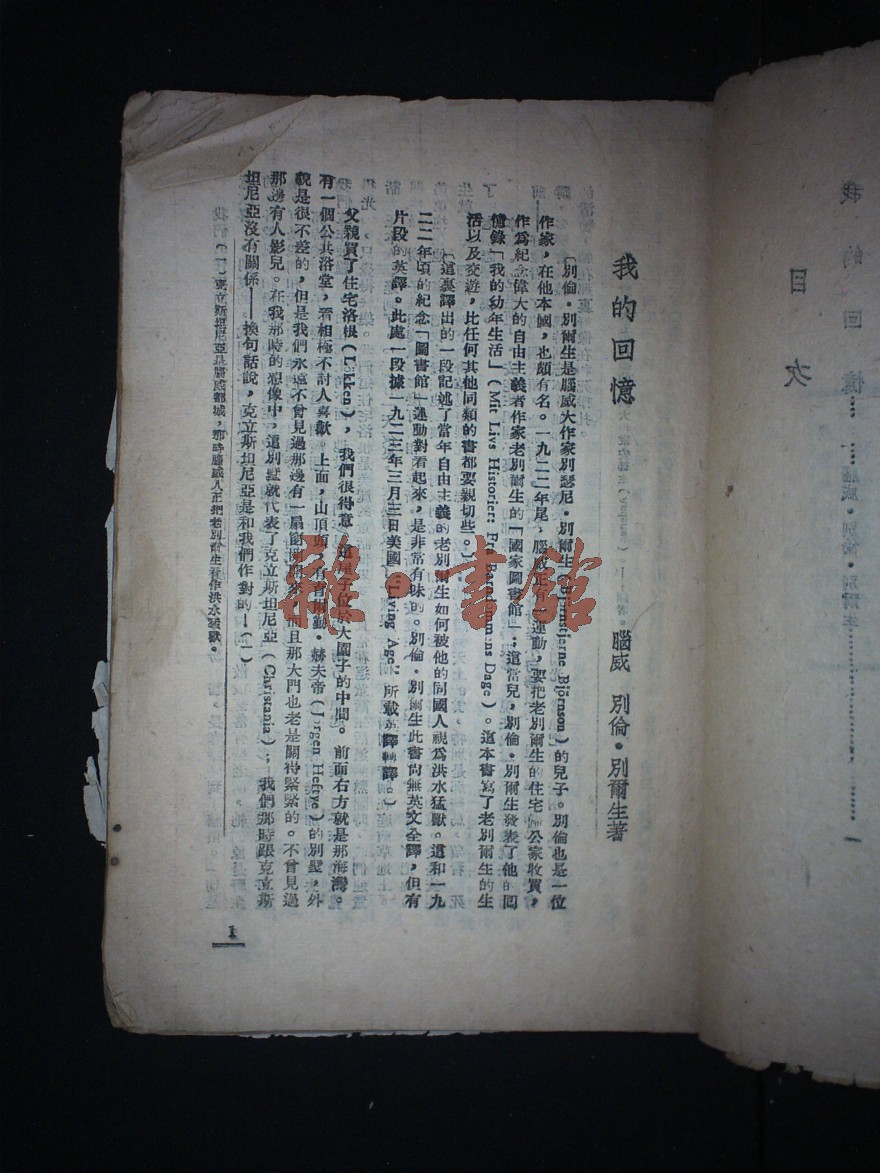 目次
我的回憶……腦威・別倫・別爾生……一
我的回憶
腦威 別倫・別爾生著
(別倫・別爾生是腦威大作家別瑟尼・別爾生(Bjornstjerne Björnson)的兒子。別倫也是一位
作家,在他本國,也頗有名。一九二二年尾,腦威正有一運動,要把老別爾生的住宅 公家收買,
作爲紀念偉大的自由主義者作家老別爾生的「國家圖書館」;這當兒,別倫・別爾生發表了他的回
憶錄「我的幼年生活」(Mit Livs Historier: Fra Barndommens Dage)。這本書寫了老別爾生的生
活以及交遊,比任何其他同類的書都要親切些。)
(這裏譯出的一段記述了當年自由主義的老別爾生如何被他的同國人視爲洪水猛獸。這和一九
二二年頃的紀念「圖書館」運動對看起來,是非常有味的。別倫・別爾生此書尚無英文全譯,但有
片段的英譯。此處一段據一九二三年三月三日美國"Living Age"所載英譯轉譯。)
父親買了住宅洛根(Løkken),我們很得意。這屋子位於大園子的中間。前面右方就是那海灣。
有一個公共浴堂,看相極不討人喜歡。上面,山頂頭,有育爾勤・赫夫帝(Jørgen Heftye)的別墅,外
觀是很不差的,但是我們永遠不曾見過那邊有一扇窗 開來,而且那大門也老是關得緊緊的。不曾見過
那邊有人影兒。在我那時的想像中,這別墅就代表了克立斯坦尼亞(Christania);我們那時跟克立斯
坦尼亞沒有關係——換句話說,克立斯坦尼亞是和我們作對的!(一)
(一)克立斯坦尼亞是腦威都城,那時腦威人正把老別爾生看作洪水猛獸。
1
雜・書館